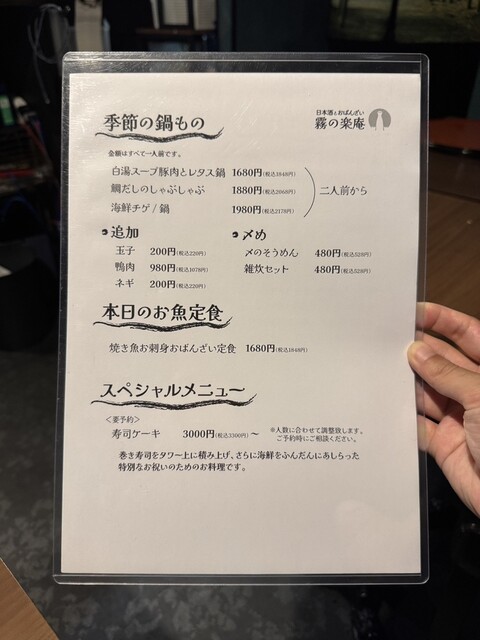 季節の鍋もの
日本酒とおばんざい
霧の楽庵
金額はすべて一人前です。
白湯スープ豚肉とレタス鍋 1680円(税込1848円)
鯛だしのしゃぶしゃぶ 1880円(税込2068円)
海鮮チゲ/鍋 1980円(税込2178円)
二人前から
追加
玉子 200円(税込220円)
鴨肉 980円(税込1078円)
ネギ 200円(税込220円)
〆め
〆のそうめん 480円(税込528円)
雑炊セット 480円(税込528円)
本日のお魚定食
焼き魚お刺身おばんざい定食 1680円(税込1848円)
スペシャルメニュー
<要予約>
寿司ケーキ 3000円(税込3300円)～
※人数に合わせて調整致します。
ご予約時にご相談ください。
巻き寿司をタワー上に積み上げ、さらに海鮮をふんだんにあしらった
特別なお祝いのためのお料理です。